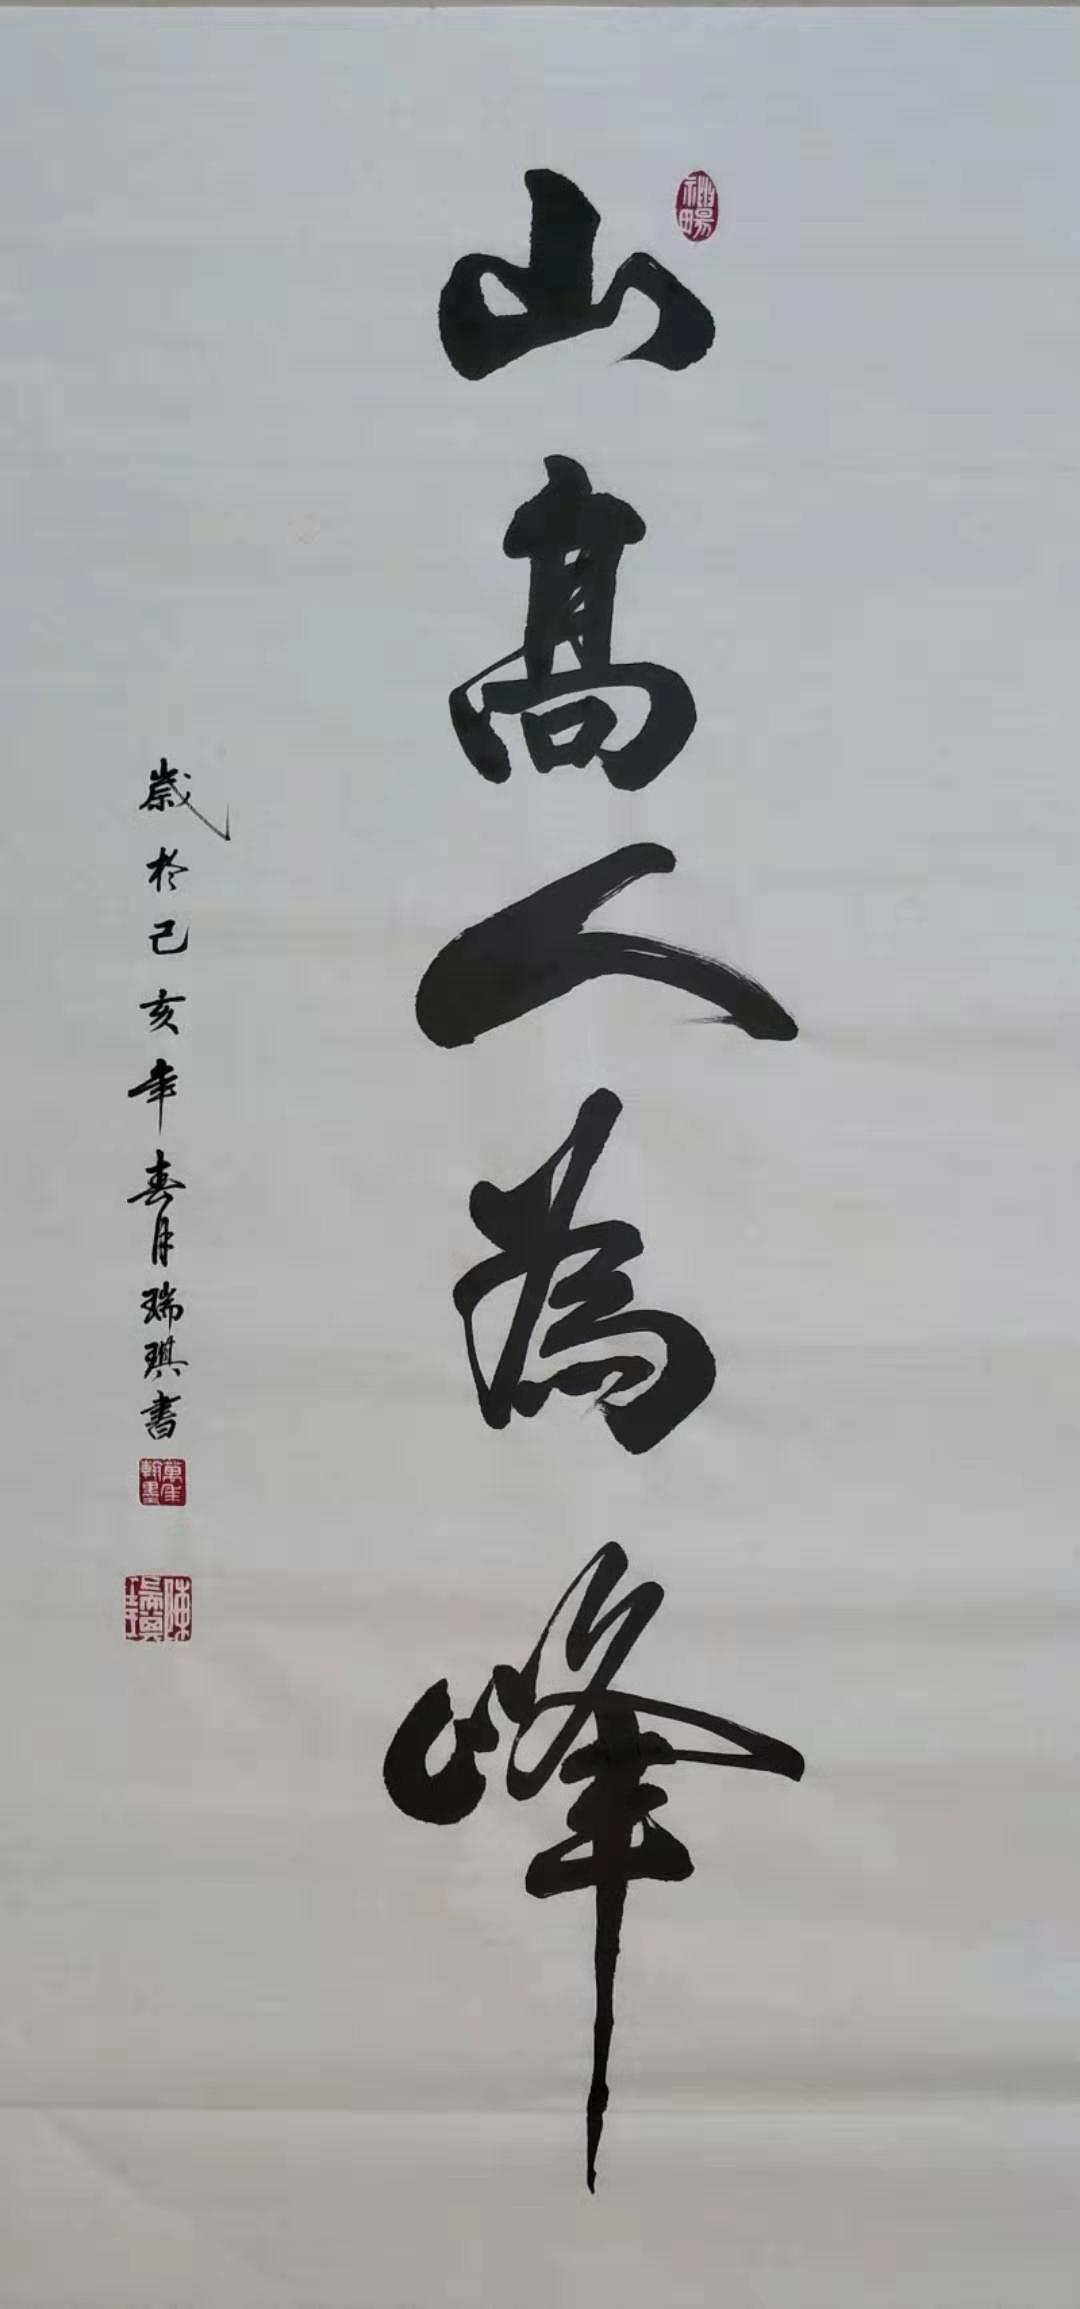 山高人為峰
歲於己亥年春月瑞琪書